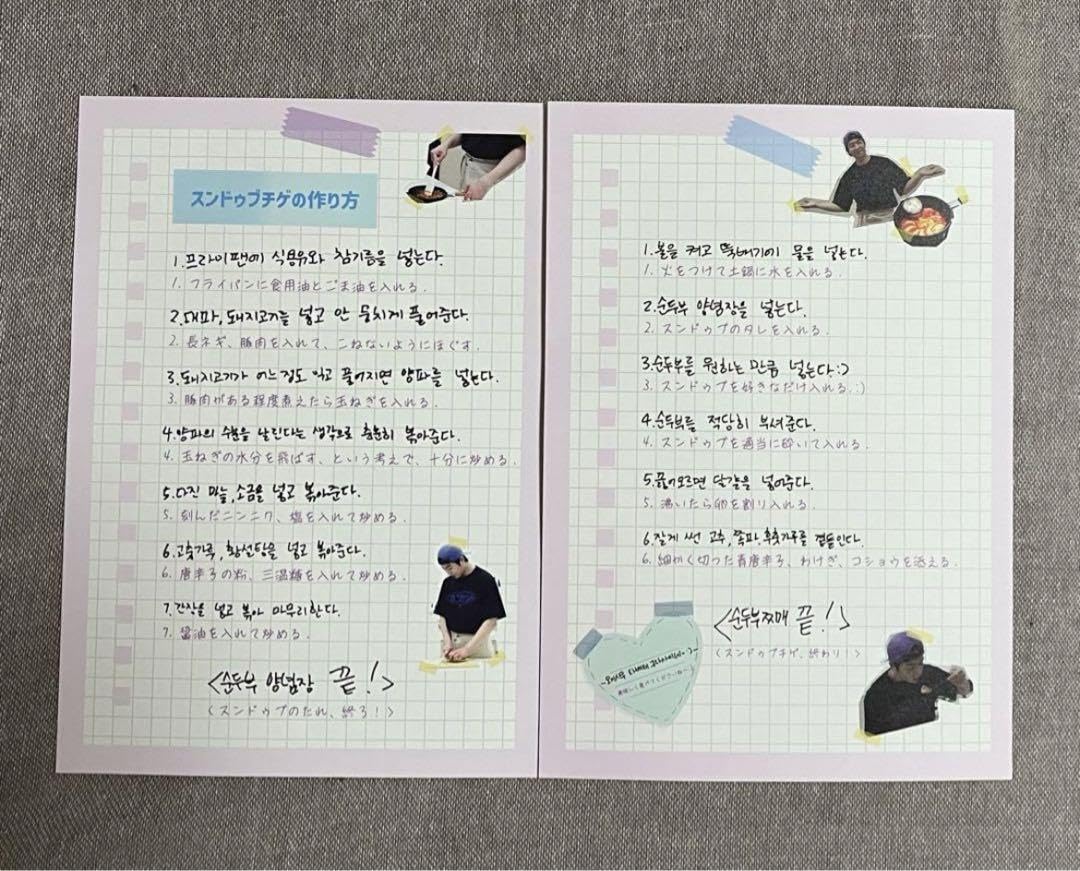 スンドゥブチゲの作り方
1. 프라이팬에 식용유와 참기름을 넣는다.
1. フライパンに食用油とごま油を入れる.
2. 대파, 돼지고기를 넣고 안 뭉치게 풀어준다.
2. 長ネギ、豚肉を入れて、こねないようにほぐす.
3. 돼지고기가 어느정도 익고 풀어지면 양파를 넣는다.
3. 豚肉がある程度煮えたら玉ねぎを入れる.
4. 양파의 수분을 날린다는 생각으로 충분히 볶아준다.
4. 玉ねぎの水分を飛ばす、という考えで、十分に炒める.
5. 다진 마늘, 소금을 넣고 볶아준다.
5. 刻んだニンニク、塩を入れて炒める.
6. 고춧가루, 황설탕을 넣고 볶아준다.
6. 唐辛子の粉、三温糖を入れて炒める.
7. 간장을 넣고 볶아 마무리한다.
7. 醤油を入れて炒める.
<순두부 양념장 끝!>
<スンドゥブのたれ、終わり!>
1. 불을 켜고 뚝배기에 물을 넣는다.
1. 火をつけて土鍋に水を入れる.
2. 순두부 양념장을 넣는다.
2. スンドゥブのタレを入れる.
3. 순두부를 원하는 만큼 넣는다:)
3. スンドゥブを好きなだけ入れる.:)
4. 순두부를 적당히 부셔준다.
4. スンドゥブを適当に砕いて入れる.
5. 끓어오르면 달걀을 넣어준다.
5. 沸いたら卵を割り入れる.
6. 잘게 썬 고추, 쪽파, 후춧가루를 곁들인다.
6. 細かく切った青唐辛子、わけぎ、コショウを添える.
<순두부찌개 끝!>
<スンドゥブチゲ、終わり!>
美味しく食べてくださいねー:)